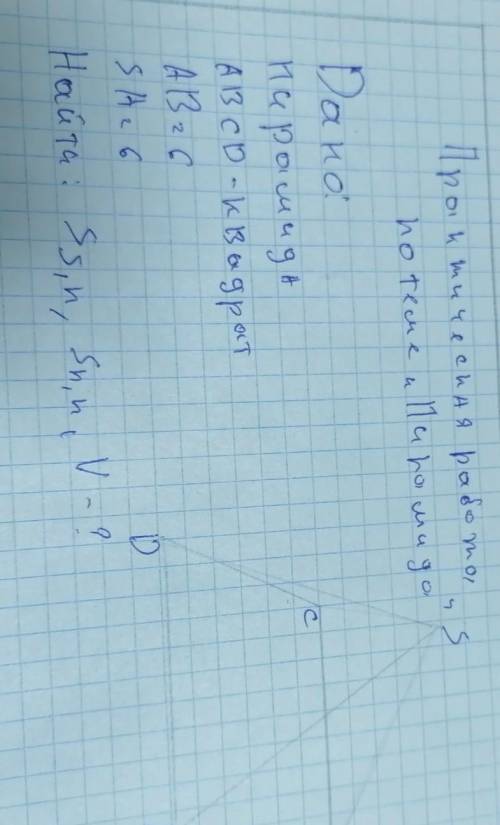 Практическая работа,
по теме "Пирамида"
Дано:
пирамида
ABCD - квадрат
AB = 6
SA = 6
Найти: Sб,п, Sп,п, V - ?
S
C
D